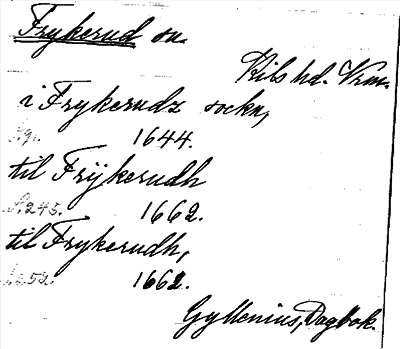 Frykerud sn.
Kils hd. Vrm.
i Frykerudz sockn,
1644.
til Frÿkerudh
S. 245. 1662.
til Frykerudh,
1662.
Gyllenius, Dagbok.